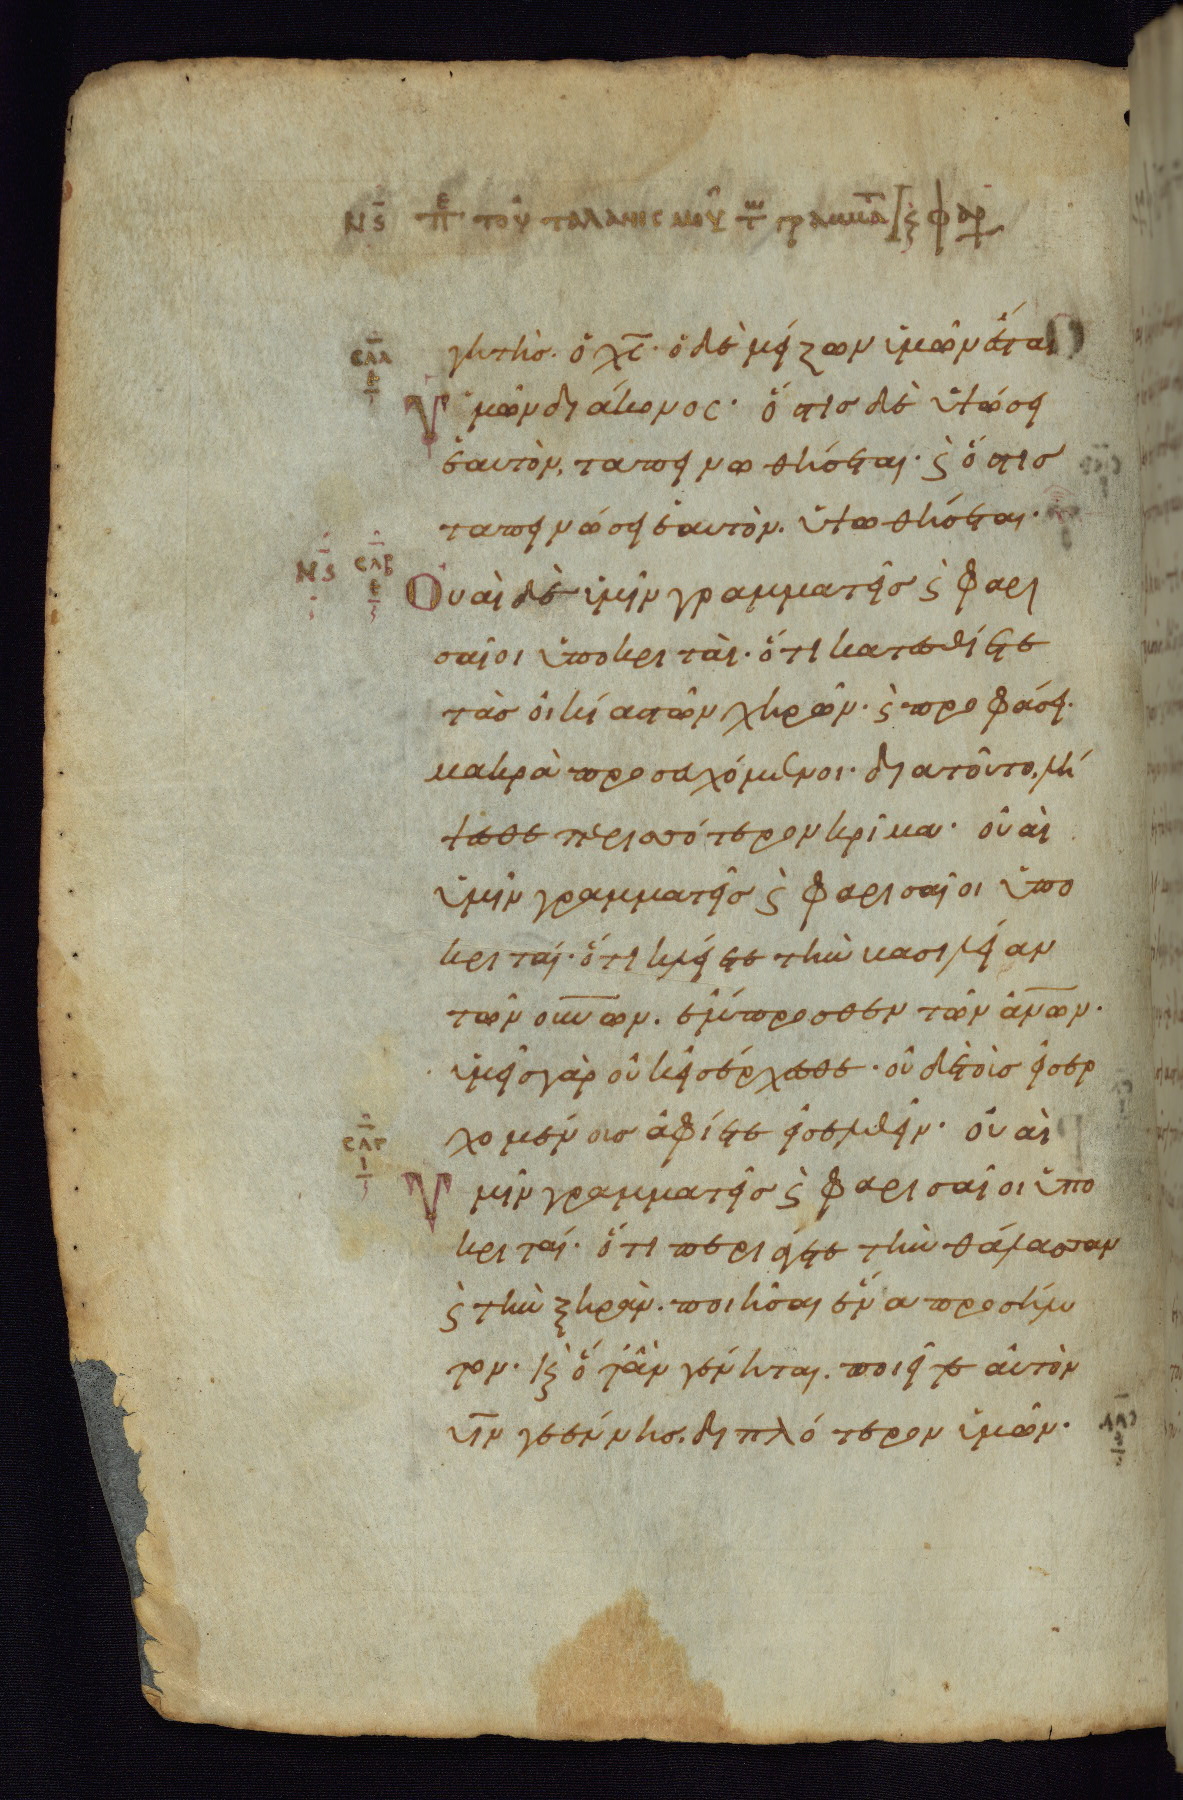 Νϛ πε τοῦ ταλανισμοῦ τω γραμμα κ φαρ
γητὴσ. ὁ χς· ὁ δὲ μείζων ὑμῶν ἔσται
σλα ε
Ὑμῶν διάκονος· ὅστισ δὲ ὑψώσει
ἑαυτὸν, ταπεινωθήσεται· κ ὅστισ
ταπεινώσει ἑαυτὸν. ὑψωθήσεται·
Νϛ σλβ
Οὐαὶ δὲ ὑμῖν γραμματεῖσ κ φαρι
σαῖοι ὑποκριταὶ· ὅτι κατεσθίετε
τὰσ οἰκίασ τῶν χηρῶν· κ προφάσει
μακρὰ προσευχόμενοι· διατοῦτο. λή
ψεσθε περισσότερον κρῖμα· οὐαὶ
ὑμῖν γραμματεῖσ κ φαρισαῖοι ὑπο
κριταί· ὅτι κλείετε τὴν βασιλείαν
τῶν οὐνων. ἔμπροσθεν τῶν ἀνων·
ὑμεῖσ γὰρ οὐκ εἰσέρχεσθε· οὐδὲ τοὺσ εἰσερ
χομένουσ ἀφίετε εἰσελθεῖν· οὐαὶ
σλγ ι
Ὑμῖν γραμματεῖσ κ φαρισαῖοι ὑπο
κριταί· ὅτι περιάγετε τὴν θάλασσαν
κ τὴν ξηρὰν. ποιῆσαι ἕνα προσήλυ
τον· κ ὅταν γένηται. ποιεῖτε αὐτὸν
υἱν γεέννησ. διπλότερον ὑμῶν·